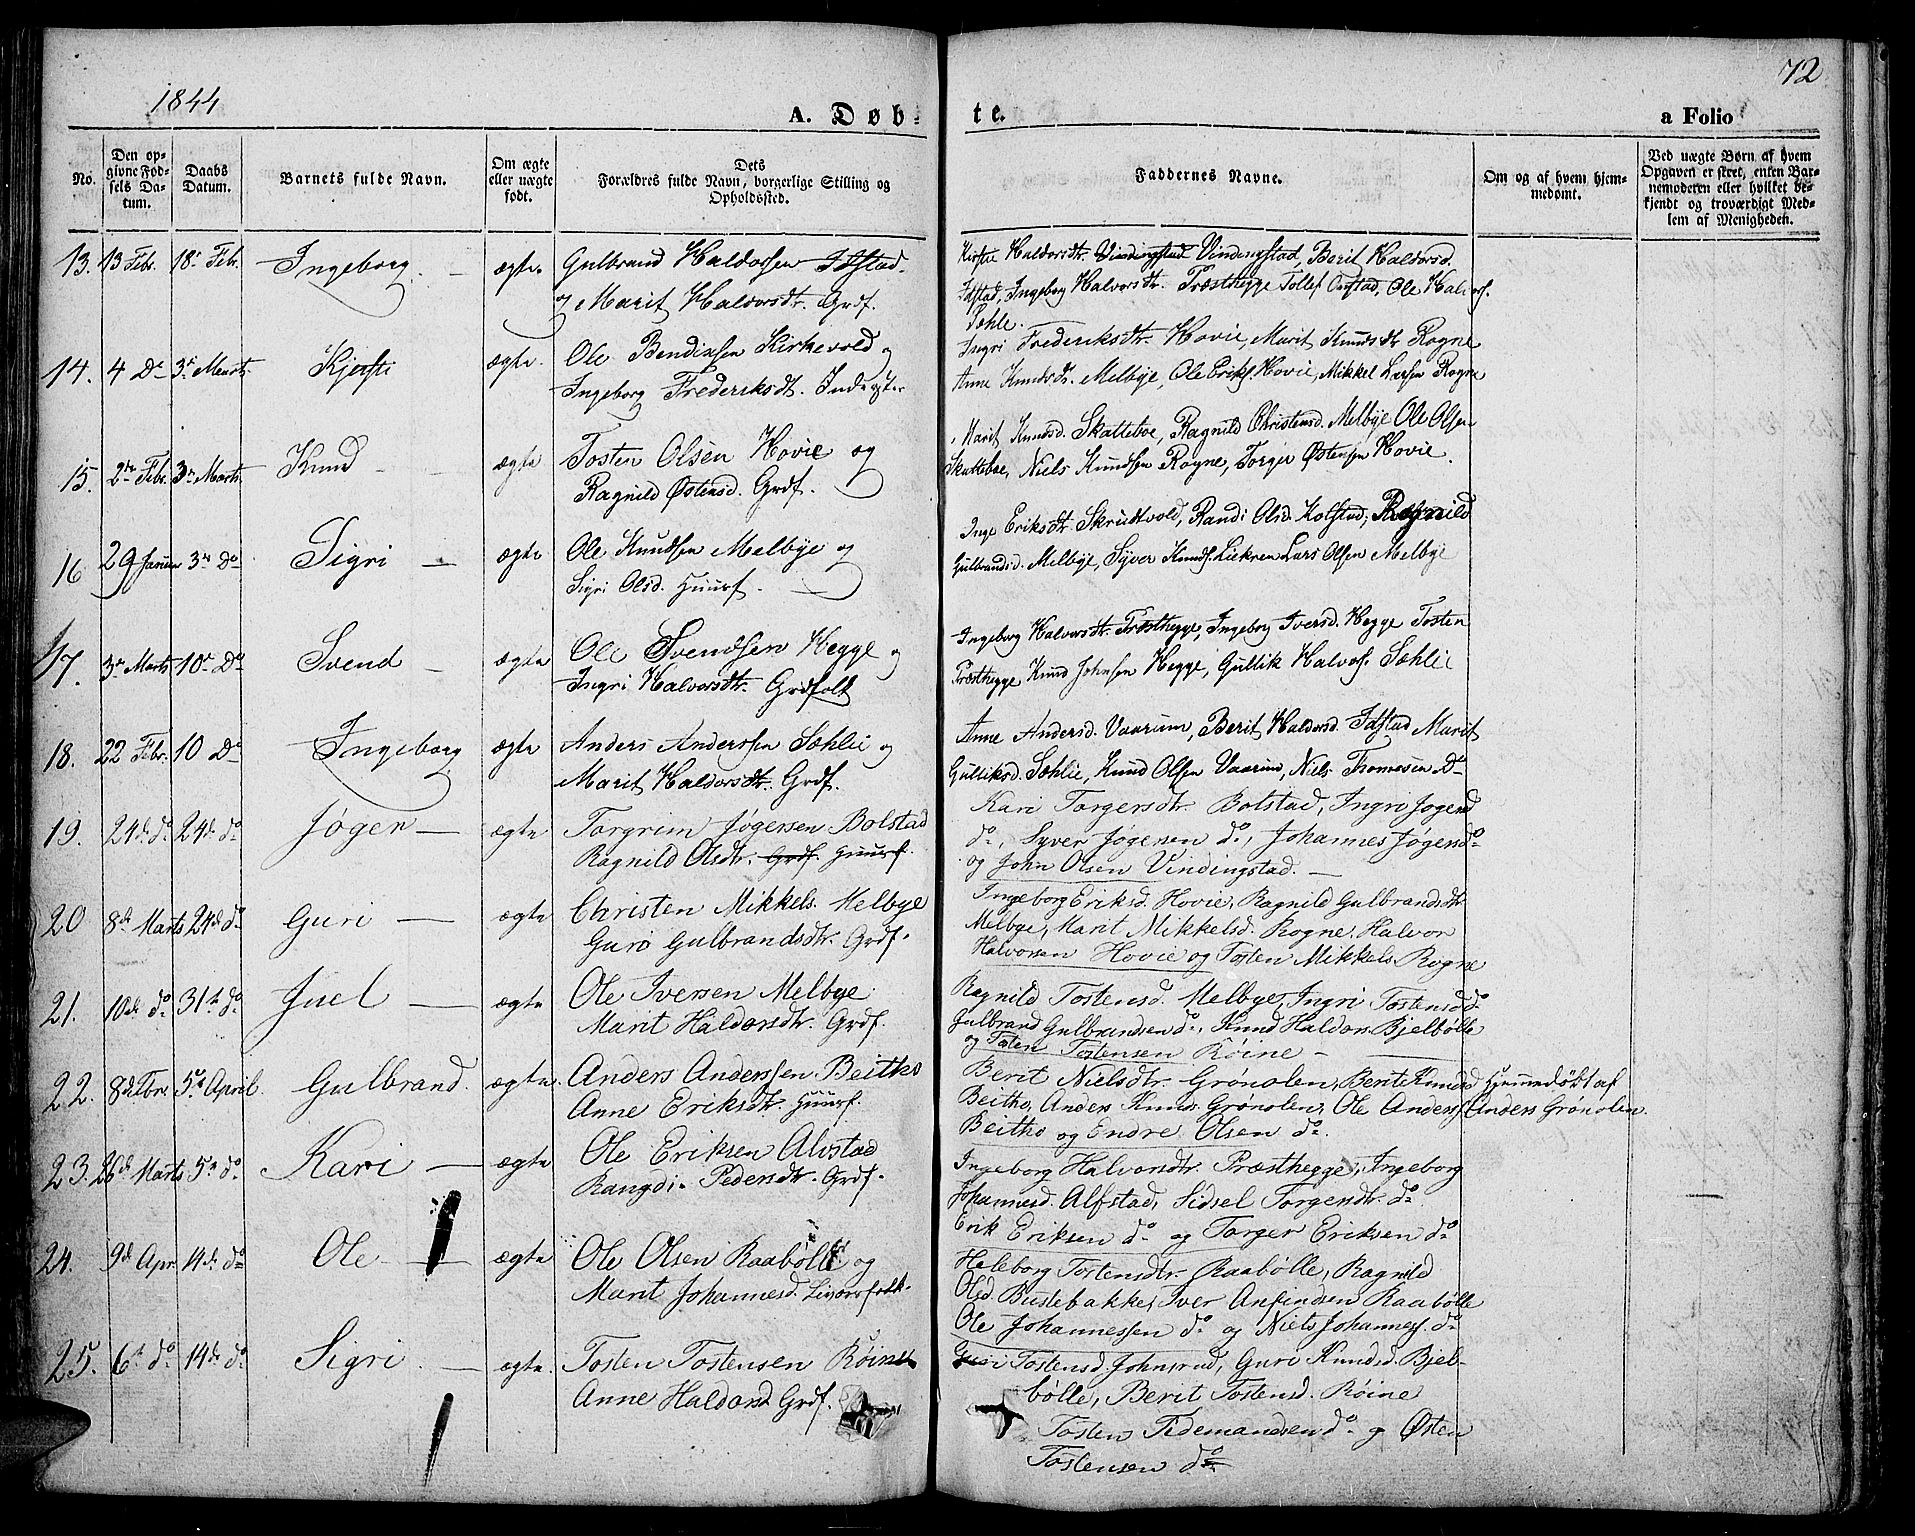 1844
72
A. Døbte.
a Folio
No.
Den opgivne Fødsels Datum.
Daabs Datum.
Barnets fulde Navn.
Om ægte eller uægte født.
Dets Forældres fulde Navn, borgerlige Stilling og Opholdssted.
Faddernes Navne.
Om og af hvem hjemmedømt.
Ved uægte Børn af hvem Opgaven er skeet, enten Barnemoderen eller hvilket bekjendt og troværdigt Medlem af Menigheden.
13. 13 Febr. 18. Febr. Ingeborg. — ægte. Gulbrand Haldorsen Idstad.
og Marit Halvorsdtr. Grdf.
Kirstie Haldorsdtr. Vindingstad Vindingstad, Berit Haldorsd.
Idstad, Ingeborg Halvorsdtr. Præsthegge Tollef Onstad, Ole Halvorsf.
Sæhle.
14. 4 Do 3. Marts Kjersti ægte. Ole Bendixsen Kirkevold og
Ingeborg Frederiksdt. Inderster
Ingri Frederiksdtr. Hovie, Marit Knudsdtr Rogne
Anne Knudsdtr. Melbye, Ole Eriks. Hovie, Mikkel Larsen Rogne
15. 2den Febr. 3de Marts. Knud — ægte Tosten Olsen Hovie og
Ragnild Østensd. Grdf.
Marit Knudsd. Skatteboe, Ragnild Christensd. Melbye Ole Olsen
Skatteboe, Niels Knudsen Rogne, Torger Østensen Hovie.
16 29 Januar 3de Do Sigri — ægte Ole Knudsen Melbye og
Sigri Olsd. Huusf.
Inge Eriksdtr. Skrudtvold, Randi Olsd. Kolstad, Ragnild
Gulbrandsd. Melbye, Syver Knudsf. Liekren Lars Olsen Melbye
17. 3de Marts 10de Do Svend — ægte Ole Svendsen Hegge og
Ingri Halvorsdtr. Grdfolk
Ingeborg Halvorsdtr. Præsthegge, Ingeborg Iversd. Hegge Tosten
Præsthegge Knud Johnsen Hegge, Gullik Halvors. Sæhlie
18. 22 Febr. 10 Do Ingeborg ægte Anders Anderssen Sæhlie og
Marit Haldorsdtr. Grdf.
Anne Andersd. Vaarum, Berit Haldorsd. Idstad Marit
Gulliksd. Sæhlie, Knud Olsen Vaarum, Niels Thomesen Do
19. 24de do 24de do Jøger — ægte Torgrim Jøgersen Bolstad
Ragnild Olsdtr. Grdf. Huusf.
Kari Torgersdtr. Bolstad, Ingri Jøgersd
do, Syver Jøgersen do, Johannes Jøgers do
og John Olsen Vindingstad. —
20 8de Marts 24de do Guri — ægte Christen Mikkels. Melbye
Guri Gulbrandsdtr. Grdf.
Ingeborg Eriksd. Hovie, Ragnild Gulbrandsdtr
Melbye, Marit Mikkelsd. Rogne. Halvor
Halvorsen Hovie og Tosten Mikkels. Rogne
21. 10de do 31te do Juel — ægte Ole Iversen Melbye
Marit Haldorsdtr. Grdf.
Ragnild Tostensd. Melbye, Ingri Tostensd do
Gulbrand Gulbrandsen do, Knud Haldors. Bjelbølle
og Tosten Tostensen Røine —
22. 8de Fbr. 5te April. Gulbrand. ægte. Anders Anderssen Beitho
Anne Eriksdtr. Huusf.
Berit Nielsdtr. Grønolen, Berit Knudsd Hjemmedøbt af
Beitho, Anders Knuds. Grønolen, Ole Anders. Anders Grønolen.
Beitho og Endre Olsen do.
23. 26de Marts 5te do Kari — ægte Ole Eriksen Alvstad
Rangdi Pedersdtr. Grdf.
Ingeborg Halvorsdtr. Præsthegge, Ingeborg
Johannesd. Alfstad, Sidsel Torgersdtr. do
Erik Eriksen do og Torger Eriksen do
24. 9de Apr. 14de do Ole — ægte Ole Olsen Raabølle og
Marit Johannesd.
Heleborg Tostensdtr. Raabølle, Ragnild
Olsd. Bustebakke, Iver Anfindsen Raabølle
Ole Johannessen do og Niels Johanness. do
25. 6te do 14de do Sigri. — ægte. Tosten Tostensen Røine
Anne Haldorsd Grdf.
Guri Tostensd. Johnsrud, Guri Knudsd. Bjel-
bølle, Berit Tostensd. Røine
Tosten Tidemandsen do og Østen
Tostensen do